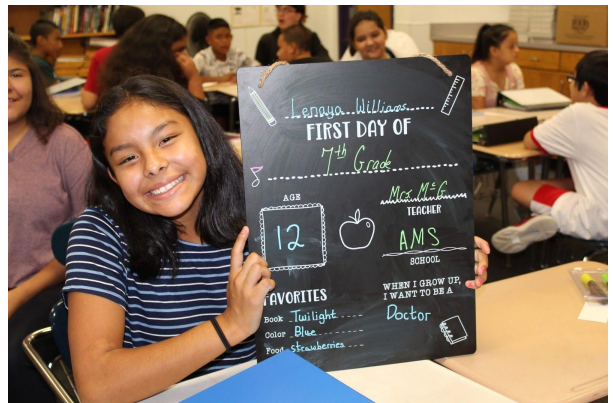 Lenaya Williams
FIRST DAY OF
7th Grade
AGE
12
Mrs. McG
TEACHER
AMS
SCHOOL
FAVORITES
Book Twilight
Color Blue
Food Strawberries
WHEN I GROW UP,
I WANT TO BE A
Doctor